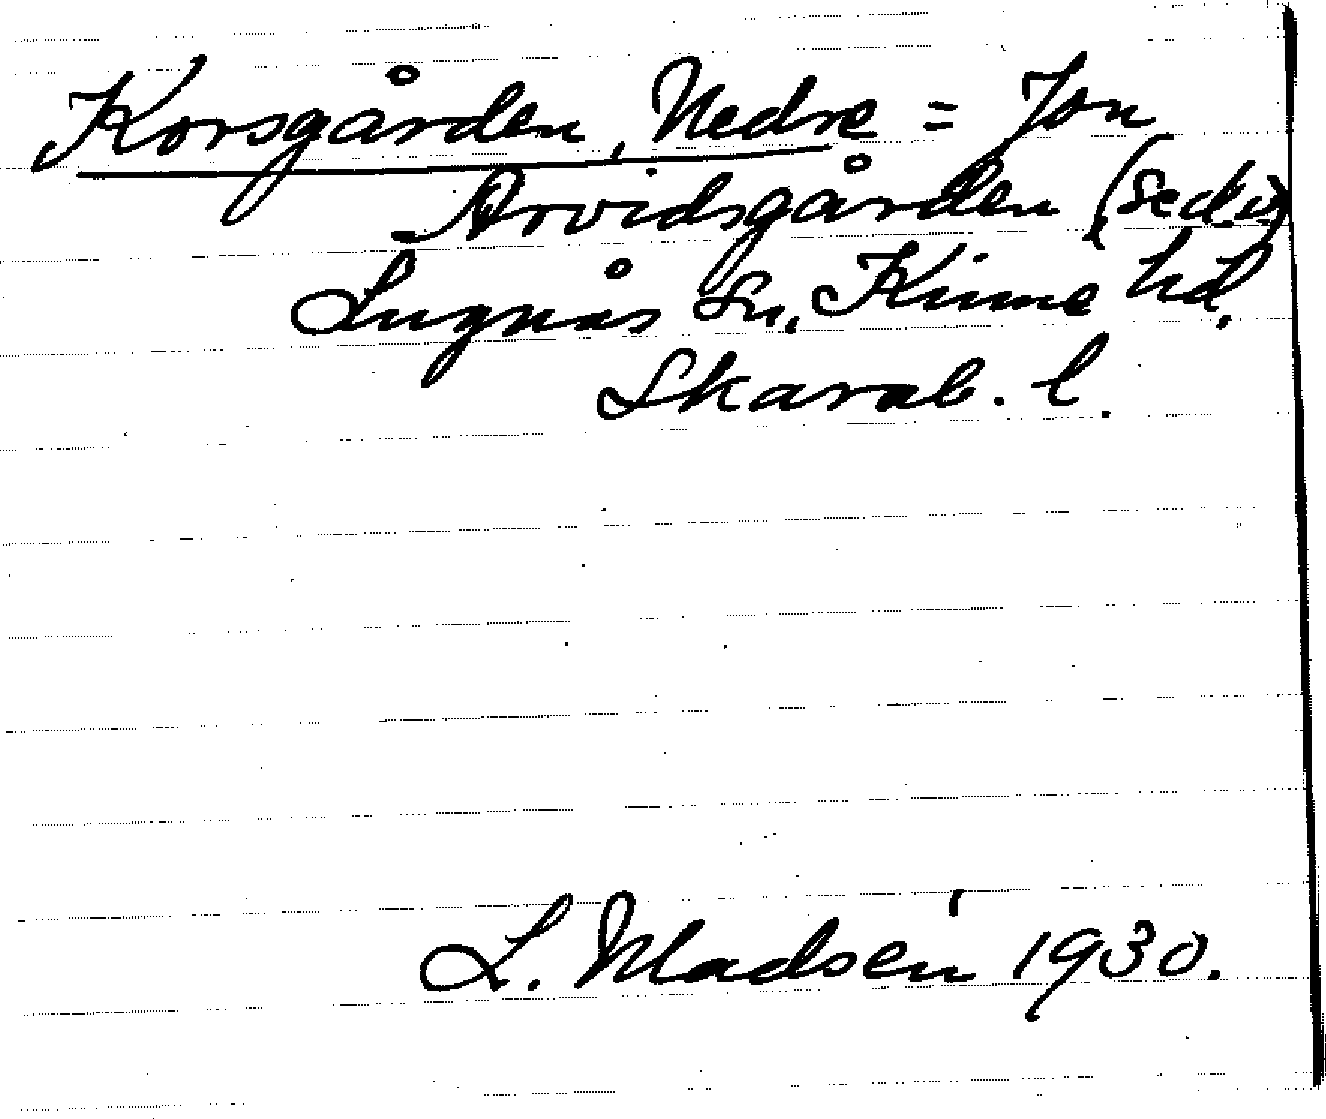 Korsgården, Nedre = Jon
Arvidsgården (se d.o)
Lugnås Sn, Kinne hd,
Skarab. l.
L. Madsén 1930.